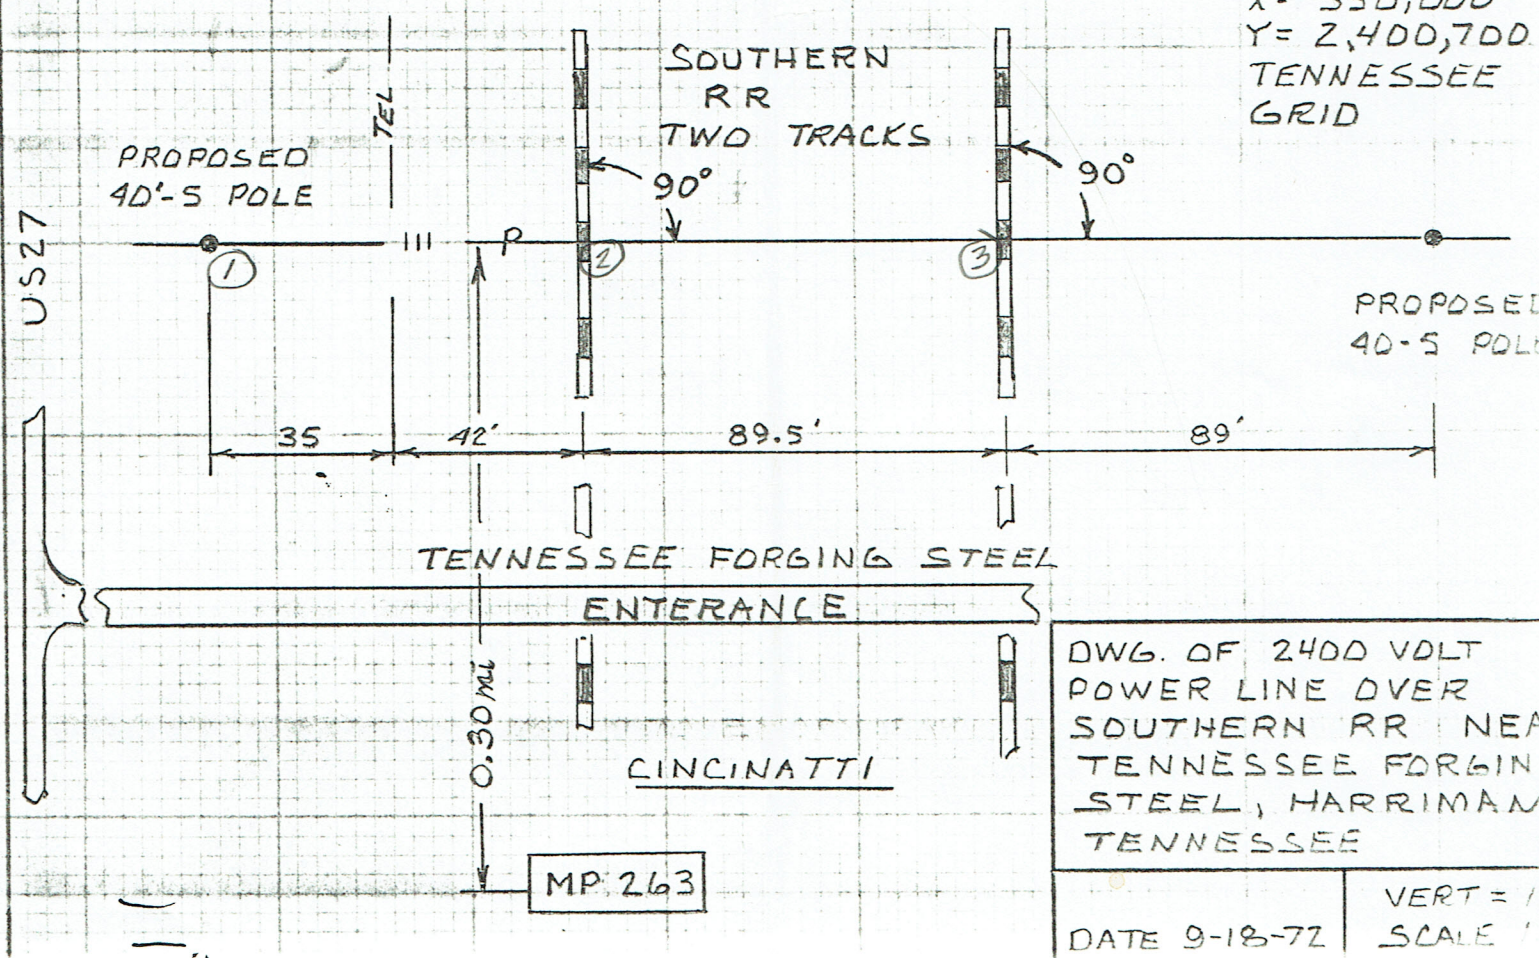 Y= 2,400,700
TENNESSEE
GRID
SOUTHERN
RR
TWO TRACKS
TEL
PROPOSED
40'-5 POLE
US27
90°
90°
P
1
2
3
PROPOSED
40-5 POLE
35
42'
89.5'
89'
TENNESSEE FORGING STEEL
ENTERANCE
0.30mi
CINCINATTI
MP. 263
DWG. OF 2400 VOLT
POWER LINE OVER
SOUTHERN RR NEA
TENNESSEE FORGIN
STEEL, HARRIMAN
TENNESSEE
DATE 9-18-72
VERT =
SCALE